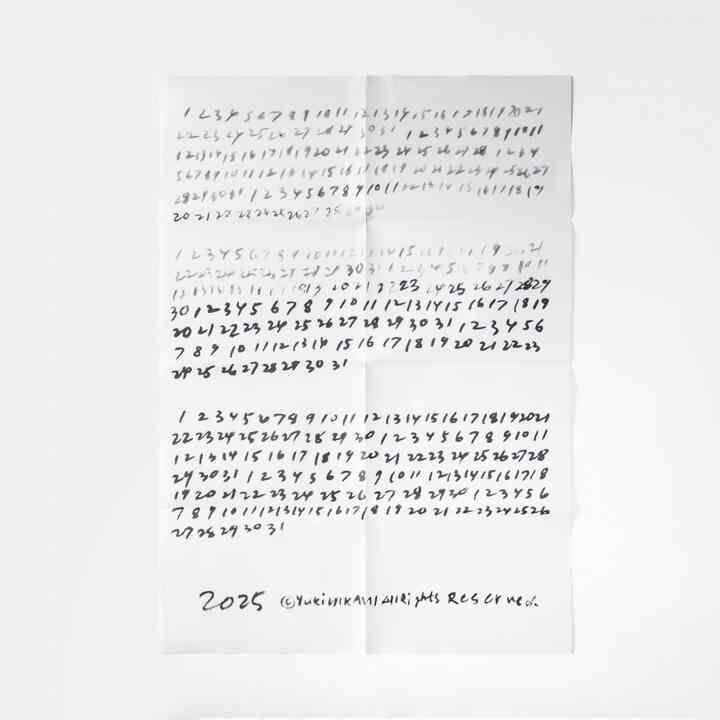 1 2 3 4 5 6 7 8 9 10 11 12 13 14 15 16 17 18 19 20 21
22 23 24 25 26 27 28 29 30 31 1 2 3 4 5 6 7 8 9 10 11
12 13 14 15 16 17 18 19 20 21 22 23 24 25 26 27 28 1 2 3 4
5 6 7 8 9 10 11 12 13 14 15 16 17 18 19 20 21 22 23 24 25 26 27
28 29 30 31 1 2 3 4 5 6 7 8 9 10 11 12 13 14 15 16 17 18 19
20 21 22 23 24 25 26 27 28 29 30
1 2 3 4 5 6 7 8 9 10 11 12 13 14 15 16 17 18 19 20 21
22 23 24 25 26 27 28 29 30 31 1 2 3 4 5 6 7 8 9 10 11
12 13 14 15 16 17 18 19 20 21 22 23 24 25 26 27 28 29
30 1 2 3 4 5 6 7 8 9 10 11 12 13 14 15 16 17 18 19
20 21 22 23 24 25 26 27 28 29 30 31 1 2 3 4 5 6
7 8 9 10 11 12 13 14 15 16 17 18 19 20 21 22 23
24 25 26 27 28 29 30 31
1 2 3 4 5 6 7 8 9 10 11 12 13 14 15 16 17 18 19 20 21
22 23 24 25 26 27 28 29 30 1 2 3 4 5 6 7 8 9 10 11
12 13 14 15 16 17 18 19 20 21 22 23 24 25 26 27 28
29 30 31 1 2 3 4 5 6 7 8 9 10 11 12 13 14 15 16 17 18
19 20 21 22 23 24 25 26 27 28 29 30 1 2 3 4 5 6
7 8 9 10 11 12 13 14 15 16 17 18 19 20 21 22 23 24 25 26
27 28 29 30 31
2025 ©Yuki All Rights Reserved.